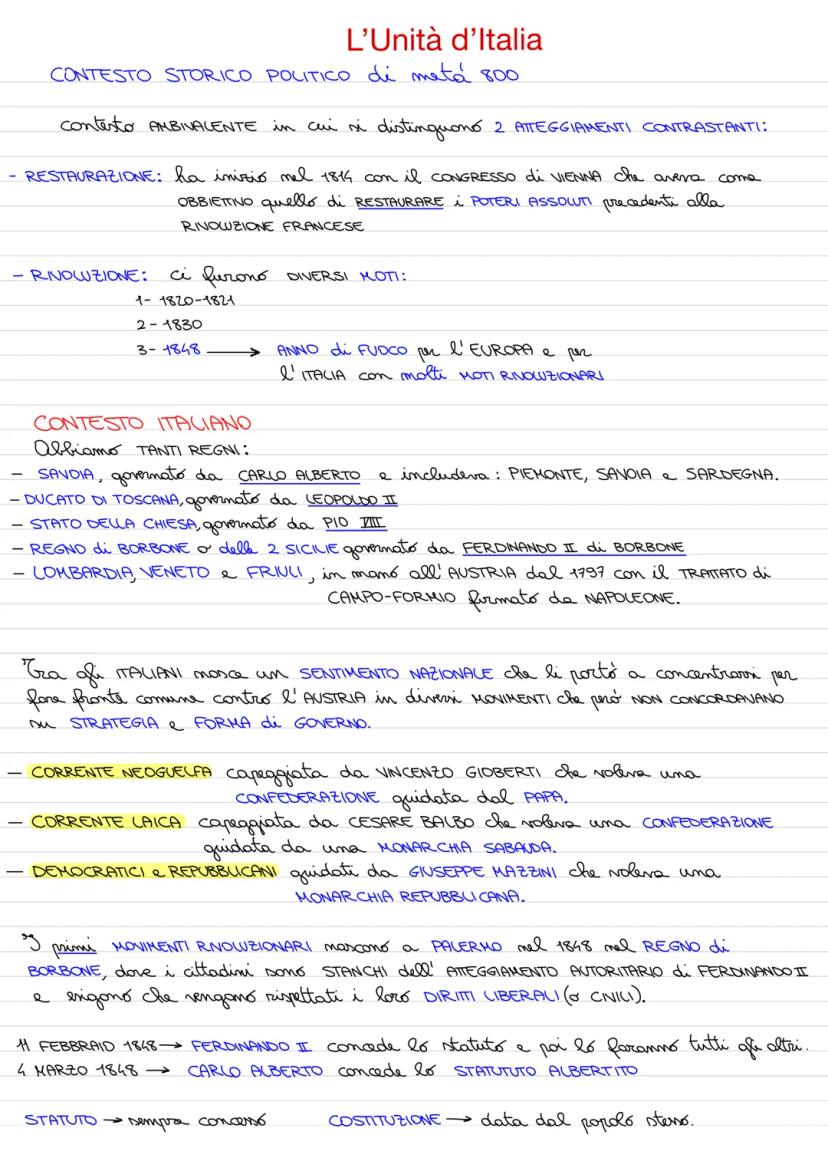 L'Unità d'Italia
CONTESTO STORICO POLITICO di metá 800
contesto AMBIVALENTE in cui si distinguono 2 ATTEGGIAMENTI CONTRASTANTI:
- RESTAURAZIONE: ha inizio nel 1814 con il CONGRESSO di VIENNA che aveva come
OBBIETTIVO quello di RESTAURARE i POTERI ASSOLUTI precedenti alla
RIVOLUZIONE FRANCESE
- RIVOLUZIONE: ci furono DIVERSI MOTI:
1- 1820-1821
2- 1830
3- 1848 → ANNO di FUOCO per l'EUROPA e per
l'ITALIA con molti MOTI RIVOLUZIONARI
CONTESTO ITALIANO
Abbiamo TANTI REGNI:
- SAVOIA, governato da CARLO ALBERTO e includeva: PIEMONTE, SAVOIA e SARDEGNA.
- DUCATO DI TOSCANA, governato da LEOPOLDO II
- STATO DELLA CHIESA, governato da PIO VIII
- REGNO di BORBONE o delle 2 SICILIE governato da FERDINANDO II di BORBONE
- LOMBARDIA, VENETO e FRIULI, in mano all'AUSTRIA dal 1797 con il TRATTATO di
CAMPO-FORMIO firmato da NAPOLEONE.
Tra gli ITALIANI nasce un SENTIMENTO NAZIONALE che li portó a concentrarsi per
fare fronte comune contro l'AUSTRIA in diversi MOVIMENTI che peró NON CONCORDAVANO
su STRATEGIA e FORMA di GOVERNO.
- CORRENTE NEOGUELFA capeggiata da VINCENZO GIOBERTI che voleva una
CONFEDERAZIONE guidata dal PAPA.
- CORRENTE LAICA capeggiata da CESARE BALBO che voleva una CONFEDERAZIONE
guidata da una MONARCHIA SABAUDA.
- DEMOCRATICI e REPUBBLICANI guidati da GIUSEPPE MAZZINI che voleva una
MONARCHIA REPUBBLICANA.
I primi MOVIMENTI RIVOLUZIONARI nascono a PALERMO nel 1848 nel REGNO di
BORBONE, dove i cittadini sono STANCHI dell'ATTEGGIAMENTO AUTORITARIO di FERDINANDO II
e esigono che vengano rispettati i loro DIRITTI LIBERALI (o CIVILI).
11 FEBBRAIO 1848 → FERDINANDO II concede lo statuto e poi lo faranno tutti gli altri.
4 MARZO 1848 → CARLO ALBERTO concede lo STATUTUTO ALBERTITO
STATUTO → sempre concesso COSTITUZIONE → data dal popolo stesso.